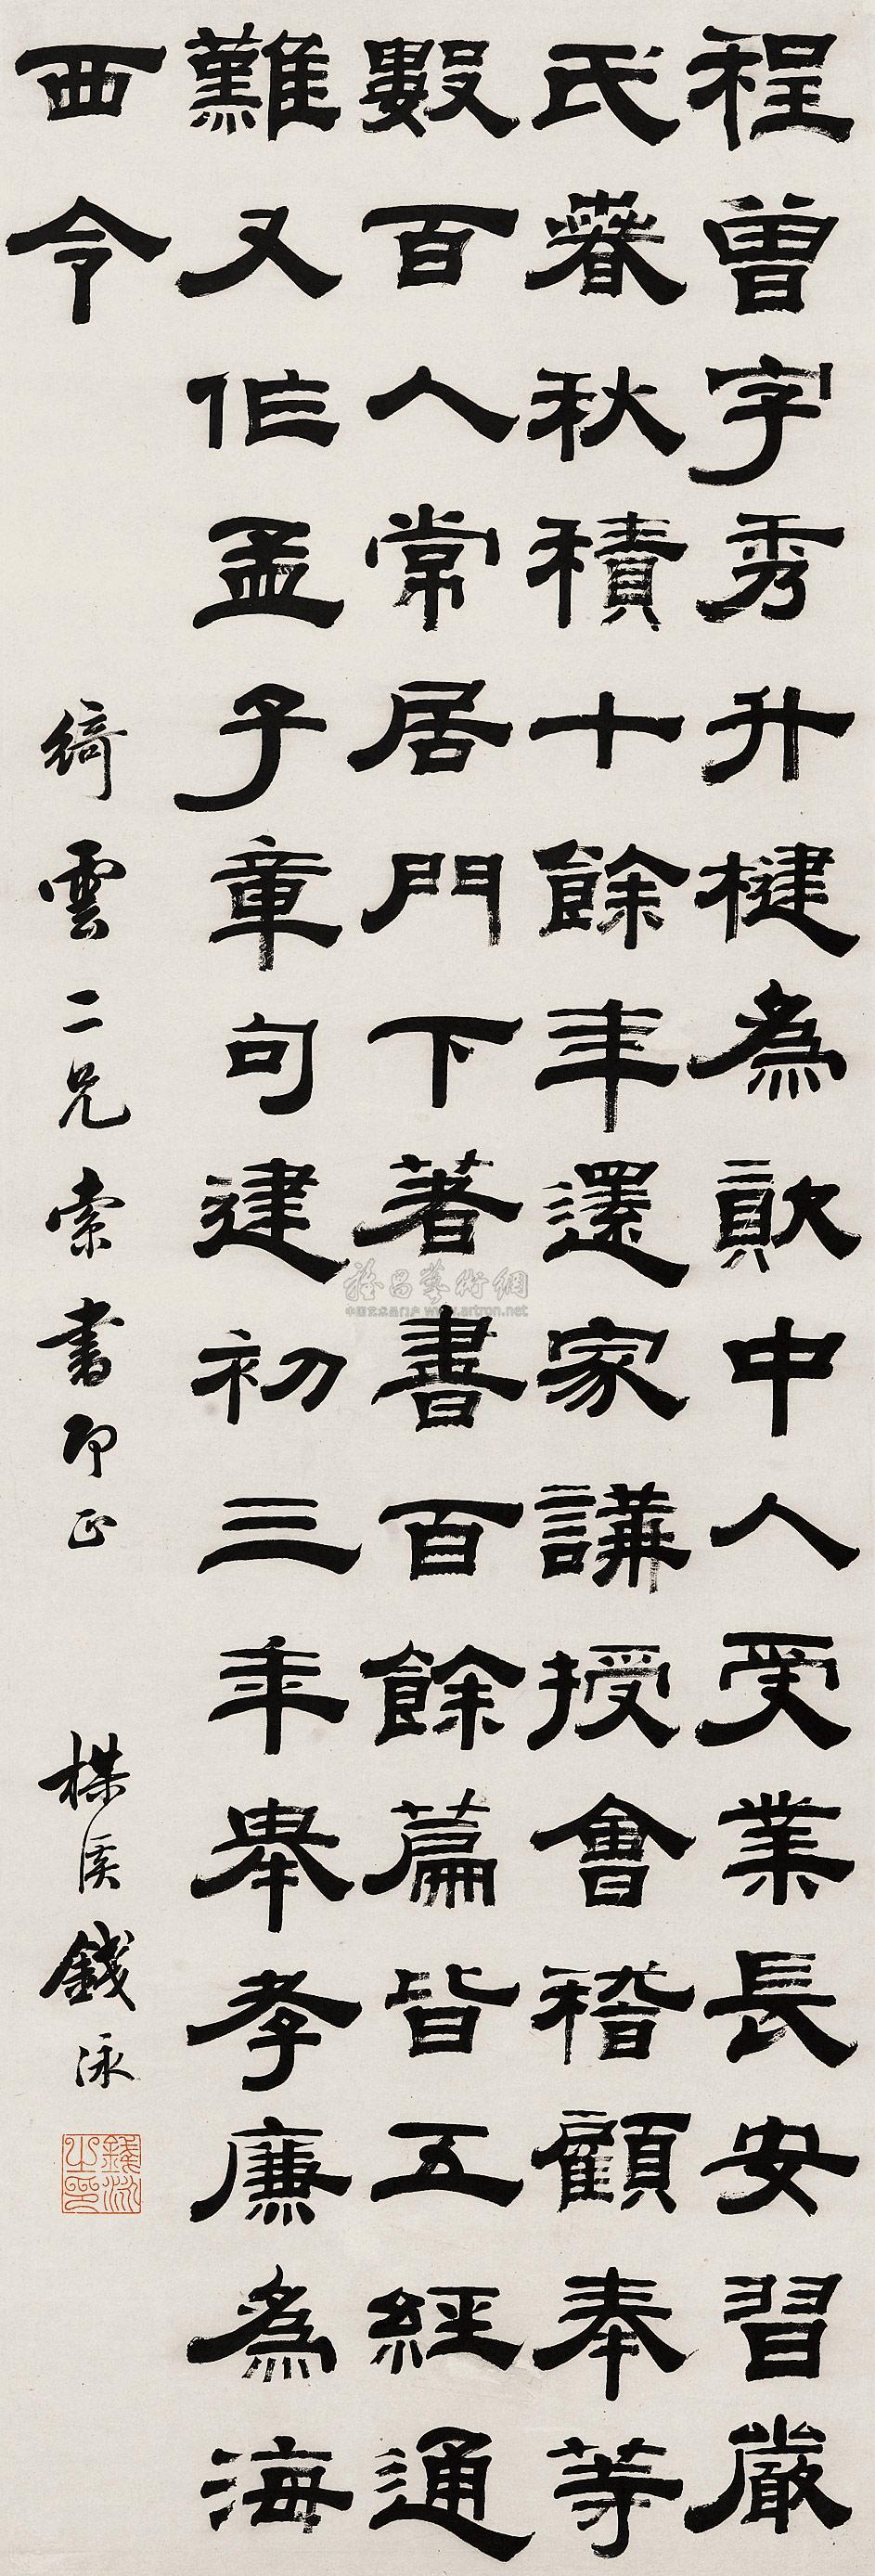 程曾字秀升楗為歟中人受業長安習嚴
氏春秋積十餘年還家講授會稽顧奉等
數百人常居門下著書百餘篇皆五經通
難又作孟子章句建初三年舉孝廉為海
西令
綺雲二兄索書即正
楳溪錢泳
錢泳之印
雅昌藝術網
中国艺术品门户 www.artron.net